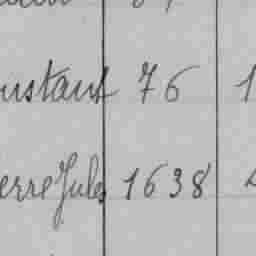 nstant 76 1
erre Jules 1638